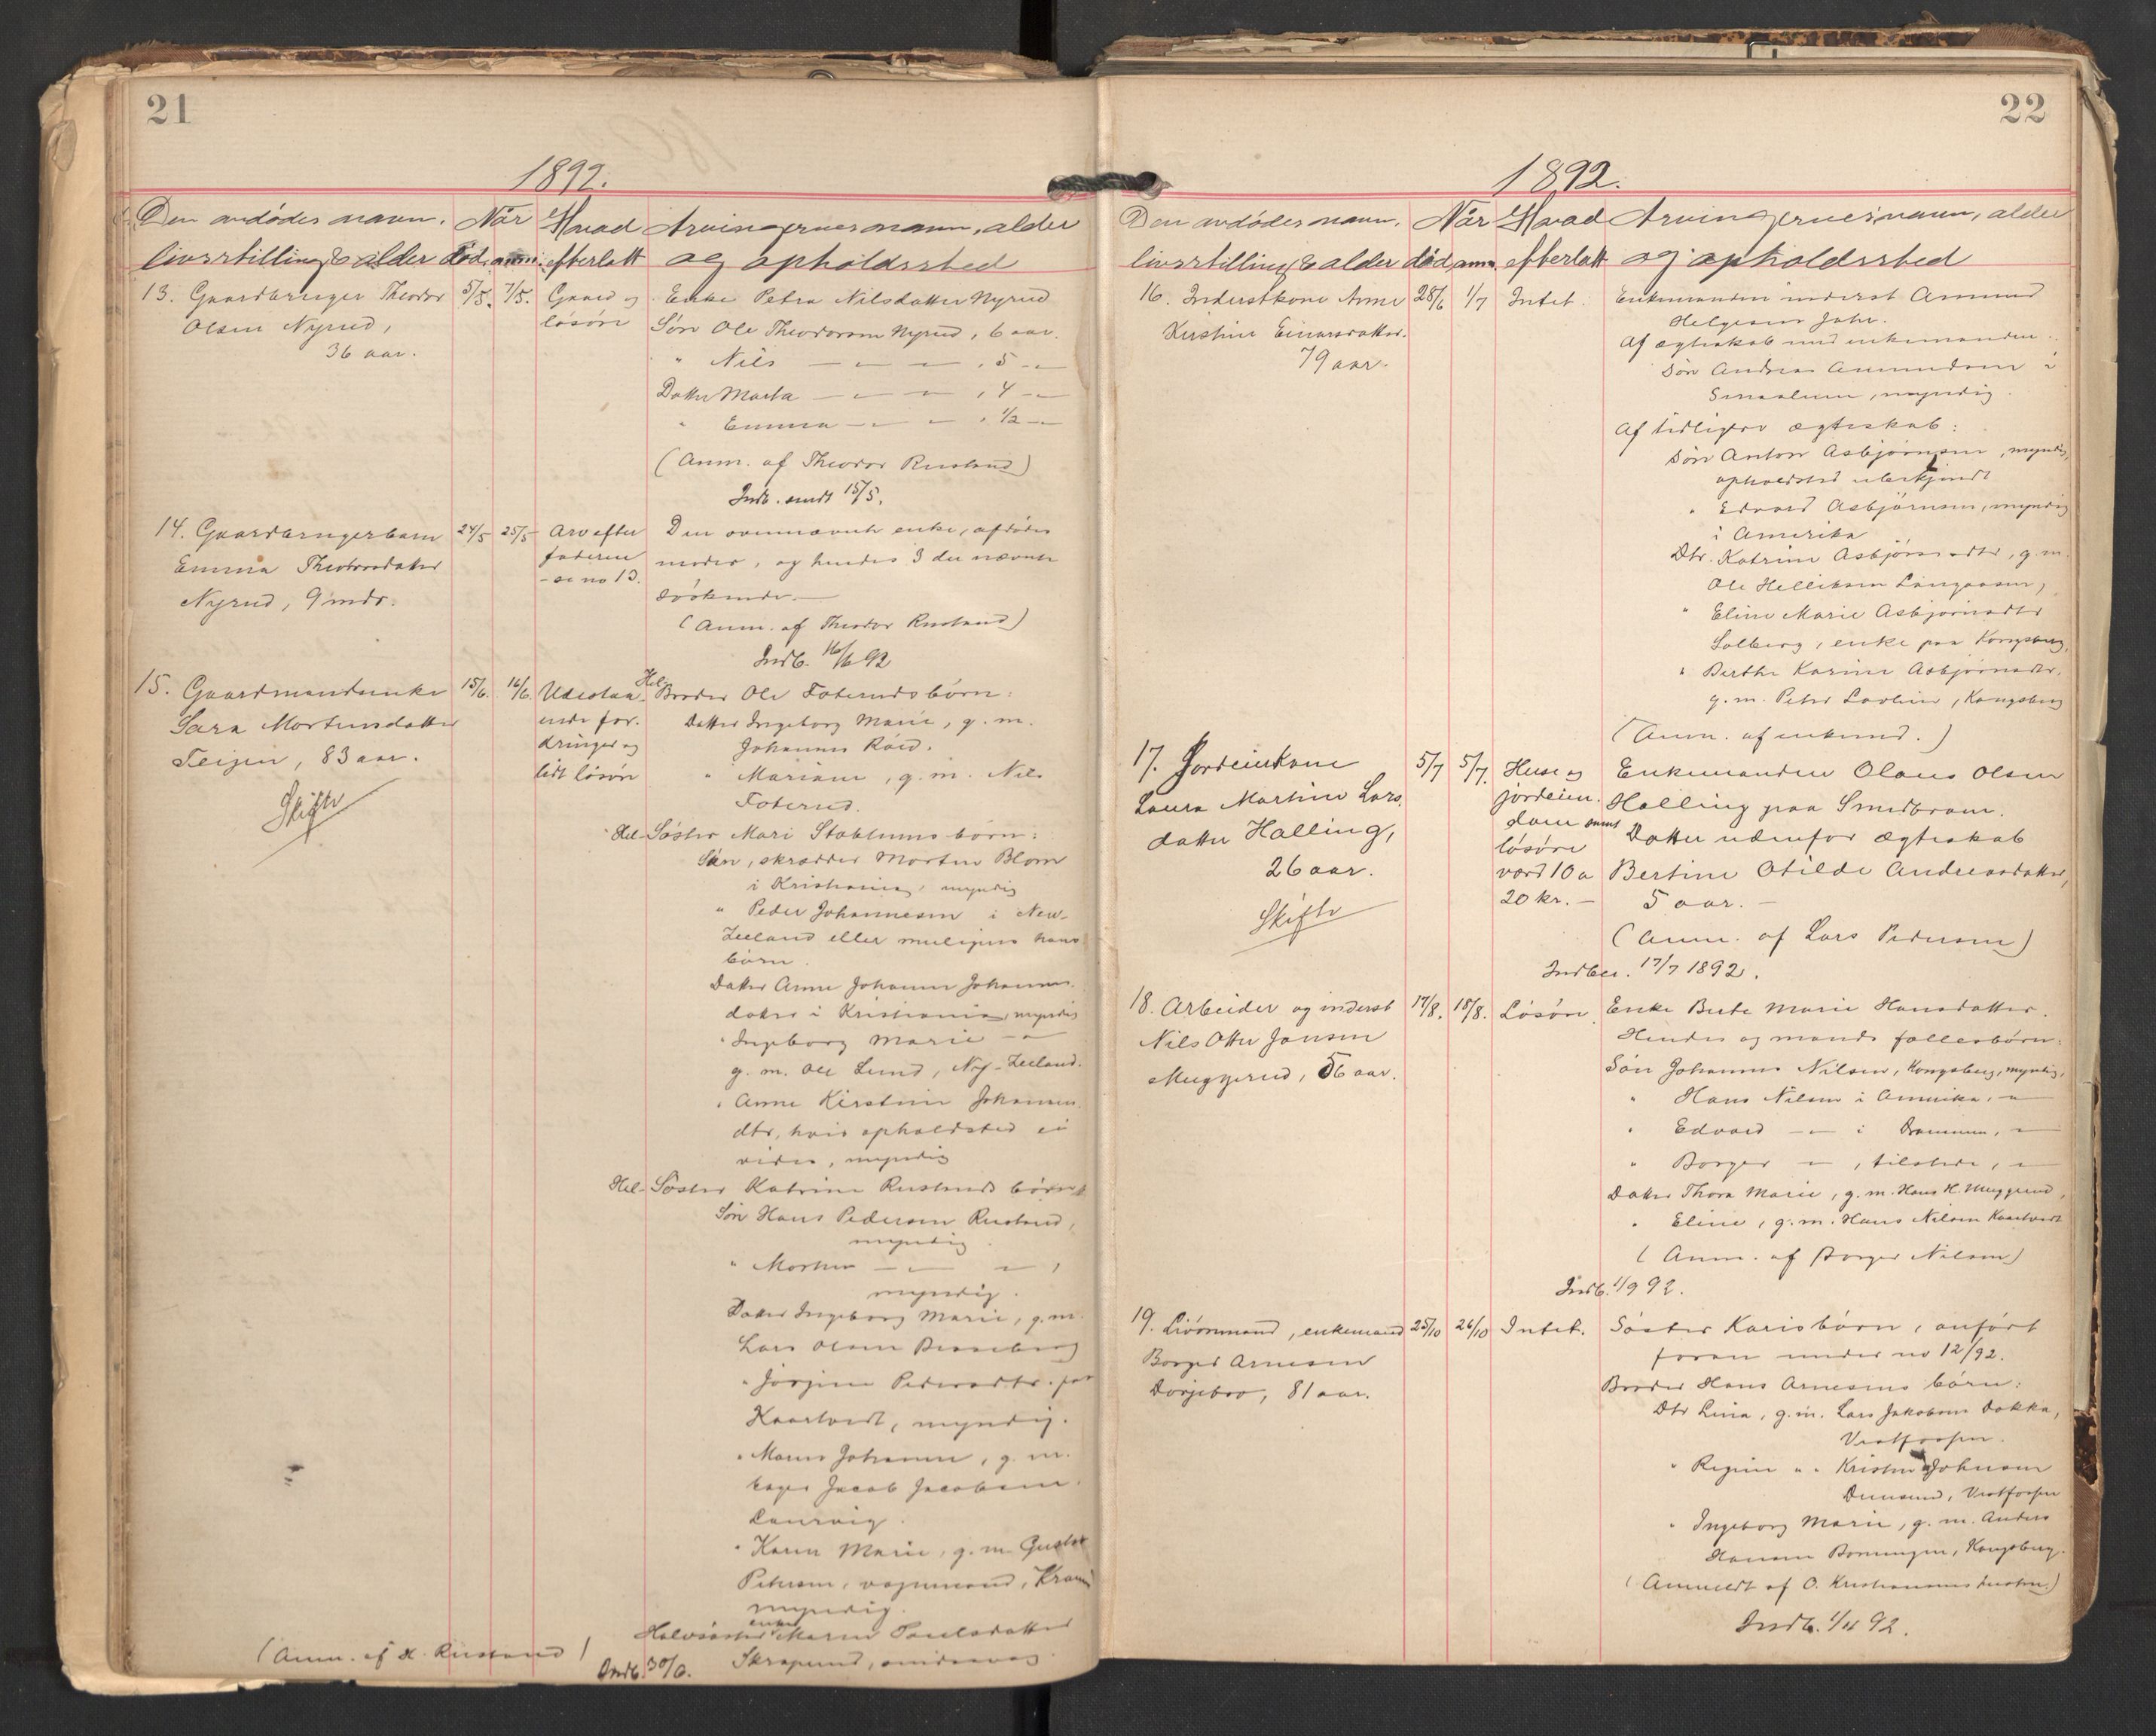 21
1892.
Den avdødes navn, Når Hvad Arvingernes navn, alder
livsstilling & alder død anm. efterlatt og opholdssted
13. Gaardbruger Theodor 5/5. 7/5. Gaard og Enke Petra Nilsdatter Nyrud
Olsen Nyrud, løsøre Søn Ole Theodorsen Nyrud, 6 aar.
36 aar. " Nils — " — " — , 5 — " —
Datter Marta — " — " — , 4 — " —
" Emma — " — " — , 1/2 — " —
(Anm. af Theodor Rustand)
Indb. sendt 15/5.
14. Gaardbrugerbarn 24/5 25/5 Arv efter Den ovennævnte enke, afdødes
Emma Theodorsdatter faderen moder, og hendes 3 der nævnte
Nyrud, 9 mdr. - se no 13. søskende. —
(Anm. af Theodor Rustand)
Indb. 16/6 92
15. Gaardmandsenke 15/6. 16/6. Udestaa- Hel- Broder Ole Foteruds børn:
Sara Mortensdatter ende for- Datter Ingeborg Marie, g. m.
Teigen, 83 aar. dringer og Johannes Røed.
lidt løsøre " Mariane, g. m. Nils
Skifte Foterud.
Hel- Søster Mari Stablums børn:
Søn, skrædder Morten Blom
i Kristiania, myndig
" Peder Johannesen i New-
Zeeland eller muligens hans
børn.
Datter Anne Johanne Johannes-
datter i Kristiania, myndig
" Ingeborg Marie — " —
g. m. Ole Lund, Ny-Zeeland.
" Anne Kirstine Johannes-
dtr, hvis opholdsted ei
vides, myndig
Hel- Søster Katrine Rustands børn:
Søn Hans Pedersen Rustand,
myndig
" Morten — " — " — ,
myndig.
Datter Ingeborg Marie, g. m.
Lars Olsen
" Jørgine Pedersdtr. paa
Kaartvedt, myndig.
" Maren Johanne, g. m.
bager Jacob Jacobsen
Laurvig.
" Karen Marie, g. m. Gustav
Petersen, vognmand,
myndig.
enke
Halvsøster Maren Poulsdatter
(Anm. af H. Rustand) Indb. 30/6.
22
1892.
Den avdødes navn, Når Hvad Arvingernes navn, alder
livsstilling & alder død, anm. efterlatt og opholdssted
16. Inderstkone Anne 28/6 1/7 Intet. Enkemanden inderst Amund
Kirstine Einarsdatter. Helgesen Jahr.
79 aar. Af ægteskab med enkemanden:
Søn Andreas Amundsen i
Smaalene, myndig.
Af tidligere ægteskab:
Søn Anton Asbjørnsen, myndig,
opholdsted ubekjendt
" Edvard Asbjørnsen, myndig
i Amerika
Dtr. Katrine Asbjørnsdtr, g. m.
Ole Helliksen Langaasen,
" Eline Marie Asbjørnsdtr
Solberg, enke paa Kongsberg,
" Berthe Karine Asbjørnsdtr.
g. m. Peter , Kongsberg
(Anm. af enkemd.)
17. Jordeierkone 5/7 5/7. Huse og Enkemanden Olaus Olsen
Laura Martine Lars- jordeien- Halling paa Smedbraaten.
datter Halling, dom samt Datter udenfor ægteskab
26 aar. løsøre Bertine Otilde Andreasdatter,
værd 10 a 5 aar. —
Skifte 20 kr. —
(Anm. af Lars Pedersen)
Indber. 17/7 1892.
18. Arbeider og inderst 17/8. 18/8. Løsøre. Enke Berte Marie Hansdatter.
Nils Otter Jansen Hendes og mands fællesbørn:
Muggerud, 56 aar. Søn Johannes Nilsen, Kongsberg, myndig,
" Hans Nilsen i Amerika, — " —
" Edvard — " — i Drammen, — " —
" Borger — " — , tilstede, — " —
Datter Thora Marie, g. m. Hans H. Muggerud,
" Eline, g. m. Hans Nilsen Kaartvedt
(Anm. af Borger Nilsen)
Indb. 1/9 92.
19. Livørmand, enkemand 25/10 26/10 Intet. Søster Karis børn, anført
Borger Arnesen foran under no 12/92.
Dorjebro, 81 aar. Broder Hans Arnesens børn:
Dtr Lina, g. m. Lars Jakobsen Dokka,
Vestfossen.
" Regine " " Kristen Johnsen
, Vestfossen
" Ingeborg Marie, g. m. Anders
Hansen , Kongsberg.
(Anmeldt af O. Kristiansens hustru.)
Indb. 1/11 92.